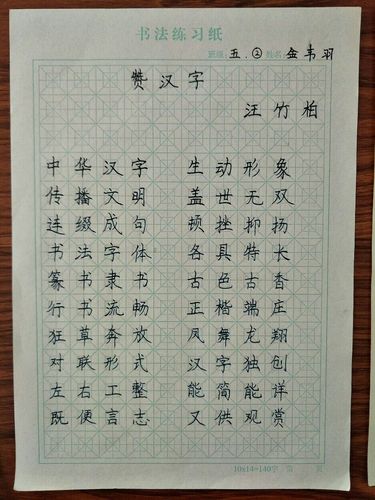 书法练习纸
班级:五.② 姓名:金韦羽
赞汉字
汪竹柏
中华汉字 生动形象
传播文明 盖世无双
连缀成句 顿挫抑扬
书法字体 各具特长
篆书隶书 古色古香
行书流畅 正楷端庄
狂草奔放 凤舞龙翔
对联形式 汉字独创
左右工整 能简能详
既便言志 又供观赏
10x14=140字 第 页